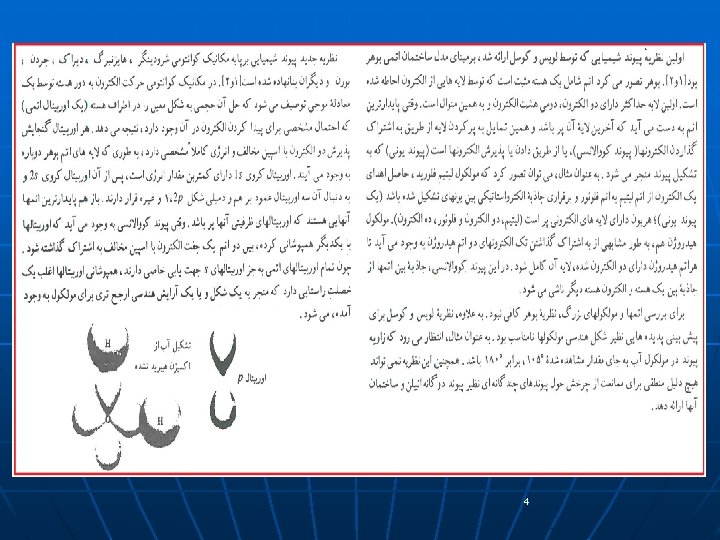 اولین نظریهٔ پیوند شیمیایی که توسط لویس و کوسل ارائه شد، برمبنای مدل ساختمان اتمی بوهر
بود[۱و۲]. بوهر تصور می کرد اتم شامل یک هسته مثبت است که توسط لایه هایی از الکترون احاطه شده
است. اولین لایه حداکثر دارای دو الکترون، دومی هشت الکترون و به همین منوال است. وقتی پایدارترین
اتم به دست می آید که آخرین لایهٔ آن پر باشد و همین تمایل به پر کردن لایه از طریق به اشتراک
گذاردن الکترونها(پیوند کووالانسی)، یا از طریق دادن یا پذیرش الکترونها (پیوند یونی) که به
تشکیل پیوند منجر می شود. به عنوان مثال، می توان تصور کرد که مولکول لیتیم فلورید، حاصل اهدای
یک الکترون از اتم لیتیم به اتم فلوئور و برقراری جاذبهٔ الکترواستاتیکی بین یونهای تشکیل شده باشد (یک
پیوند یونی)؛ هریون دارای لایه های الکترونی پر است (لیتیم، دو الکترون و فلوئور، ده الکترون). مولکول
هیدروژن هم، به طور مشابهی از به اشتراک گذاشتن تک الکترونهای دو اتم هیدروژن به وجود می آید تا
هراتم هیدروژن دارای دو الکترون شده، لایه آن کامل شود. در این پیوند کووالانسی، جاذبهٔ بین اتمها از
جاذبهٔ بین یک هسته و الکترون هسته دیگر ناشی می شود.
برای بررسی اتمها و مولکولهای بزرگ، نظریهٔ بوهر کافی نبود. به علاوه، نظریهٔ لویس و کوسل برای
پیش بینی پدیده هایی نظیر شکل هندسی مولکولها نامناسب بود. به عنوان مثال، انتظار می رود که زاویه
پیوند در مولکول آب به جای مقدار مشاهده شدهٔ ۱۰۵°، برابر ۱۸۰° باشد. همچنین این نظریه نمی تواند
هیچ دلیل منطقی برای ممانعت از چرخش حول پیوندهای چند گانه ای نظیر پیوند دوگانه اتیلن و ساختمان
آنها ارائه دهد.
نظریه جدید پیوند شیمیایی برپایه مکانیک کوانتومی شرودینگر، هایزنبرگ، دیراک، جردن،
بورن و دیگران بنانهاده شده است[۱و۲]. در مکانیک کوانتومی حرکت الکترون به دور هسته توسط یک
معادلهٔ موجی توصیف می شود که حل آن حجمی به شکل معین را در اطراف هسته (یک اوربیتال اتمی)
که احتمال مشخصی برای پیدا کردن الکترون در آن وجود دارد، نتیجه می دهد. هر اوربیتال گنجایش
پذیرش دو الکترون با اسپین مخالف و انرژی کاملاً مشخصی دارد، به طوری که لایه های اتم بوهر دوباره
به وجود می آیند. اوربیتال کروی 1s دارای کمترین مقدار انرژی است، پس از آن اوربیتال کروی 2s و
به دنبال آن سه اوربیتال عمود بر هم دمبلی شکل 2p، و غیره قرار دارند. باز هم پایدارترین اتمها
آنهایی هستند که اوربیتالهای ظرفیتی آنها پر باشد. وقتی پیوند کووالانسی به وجود می آید که اوربیتالها
با یکدیگر همپوشانی کرده، بین دو اتم یک جفت الکترون با اسپین مخالف به اشتراک گذاشته شود.
چون تمام اوربیتالهای اتمی به جز اوربیتالهای s جهت یابی خاصی دارند، همپوشانی اوربیتالها اغلب یک
خصلت راستایی دارد که منجر به یک شکل و یا یک آرایش هندسی ارجح تری برای مولکول به وجود
آمده، می شود.
تشکیل آب از
اکسیژن هیبرید نشده
اوربیتال p
H
O
H
4